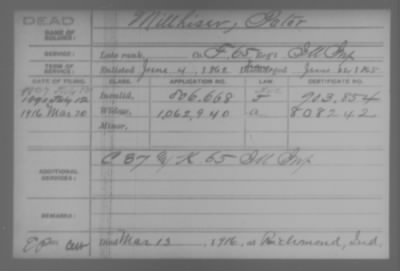 DEAD
NAME OF SOLDIER: Millhiser, Peter
SERVICE: Late rank, Co. F, 65 Reg't Ill Inf
TERM OF SERVICE: Enlisted June 4, 1862 Discharged June 22, 1865
DATE OF FILING. CLASS. APPLICATION NO. LAW. CERTIFICATE NO.
July 12 Invalid, 506,668 903,854
1916 Mar 20 Widow, 1,062,940 a 808242
Minor,
ADDITIONAL SERVICES: C 37 & K 65 Ill Inf
REMARKS:
Died Mar 13, 1916, at Richmond, Ind.